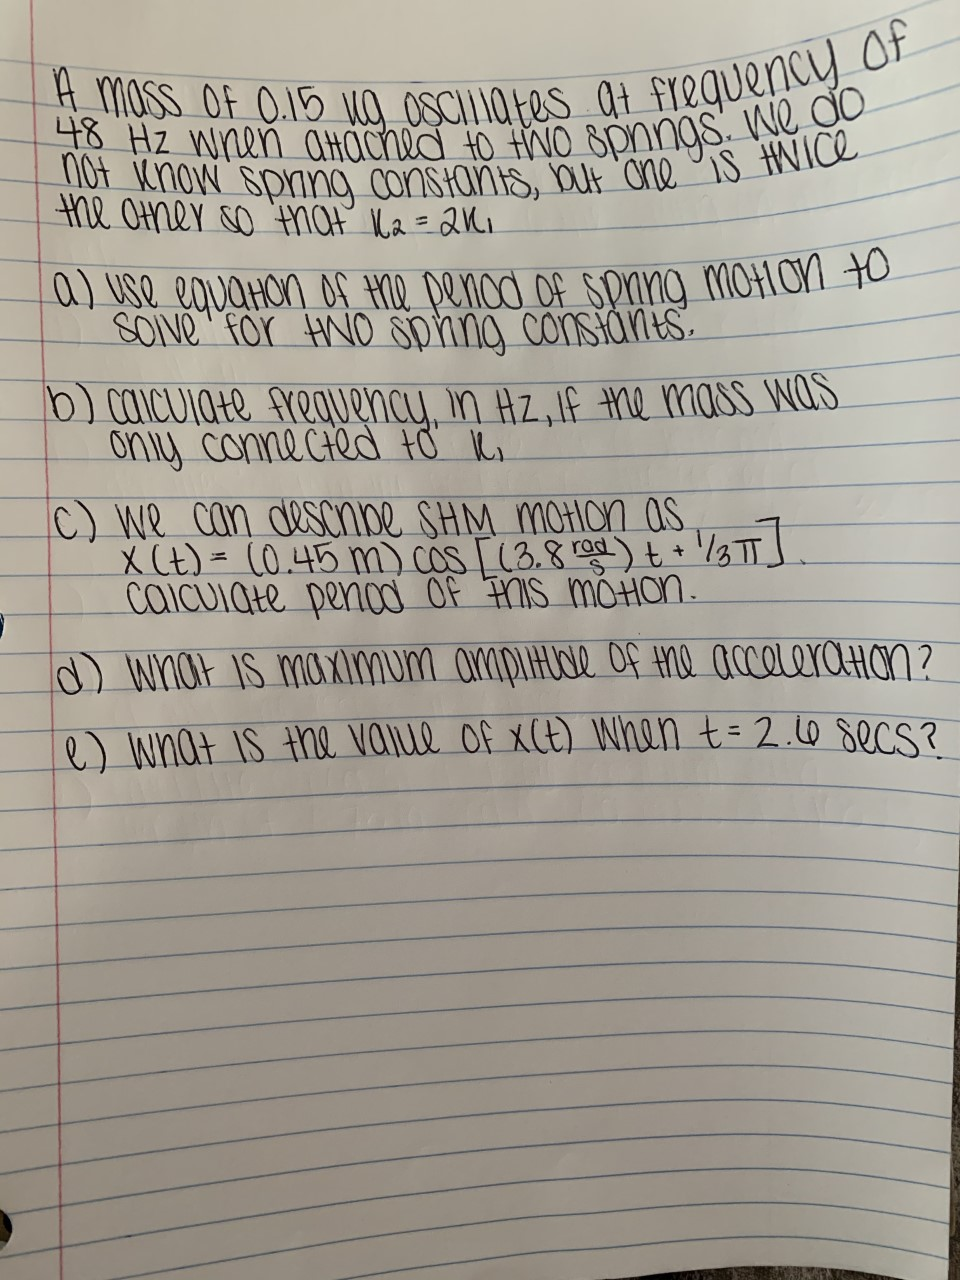 A mass of 0.15 kg oscillates at frequency of
48 Hz when attached to two springs. We do
not know spring constants, but one is twice
the other so that K₂ = 2K₁
a) use equation of the period of spring motion to
solve for two spring constants.
b) calculate frequency, in Hz, if the mass was
only connected to K₁
c) we can describe SHM motion as
x(t) = (0.45 m) cos [(3.8 rad/s) t + 1/3 π].
calculate period of this motion.
d) what is maximum amplitude of the acceleration?
e) what is the value of x(t) when t = 2.6 secs?